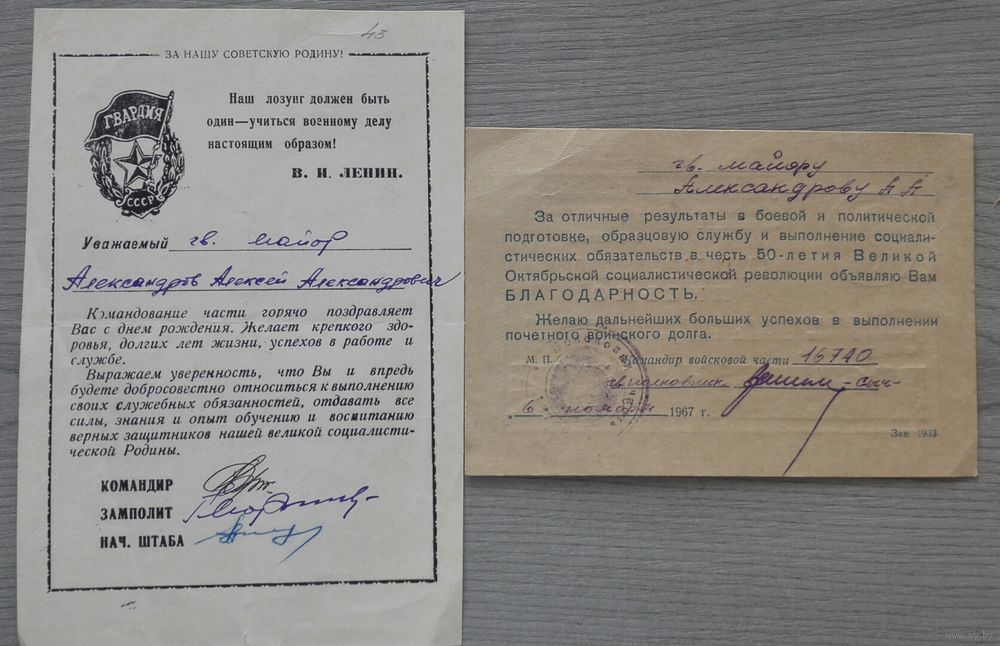 43
ЗА НАШУ СОВЕТСКУЮ РОДИНУ!
ГВАРДИЯ
СССР
Наш лозунг должен быть
один—учиться военному делу
настоящим образом!
В. И. ЛЕНИН.
Уважаемый гв. майор
Александров Алексей Александрович
Командование части горячо поздравляет
Вас с днем рождения. Желает крепкого здо-
ровья, долгих лет жизни, успехов в работе и
службе.
Выражаем уверенность, что Вы и впредь
будете добросовестно относиться к выполнению
своих служебных обязанностей, отдавать все
силы, знания и опыт обучению и воспитанию
верных защитников нашей великой социалисти-
ческой Родины.
КОМАНДИР
ЗАМПОЛИТ
НАЧ. ШТАБА
гв. майору
Александрову А А
За отличные результаты в боевой и политической
подготовке, образцовую службу и выполнение социали-
стических обязательств в честь 50-летия Великой
Октябрьской социалистической революции объявляю Вам
БЛАГОДАРНОСТЬ.
Желаю дальнейших больших успехов в выполнении
почетного воинского долга.
М. П. Командир войсковой части 15740
гв полковник
6 ноября 1967 г.
Зак 1933
www.ay.by